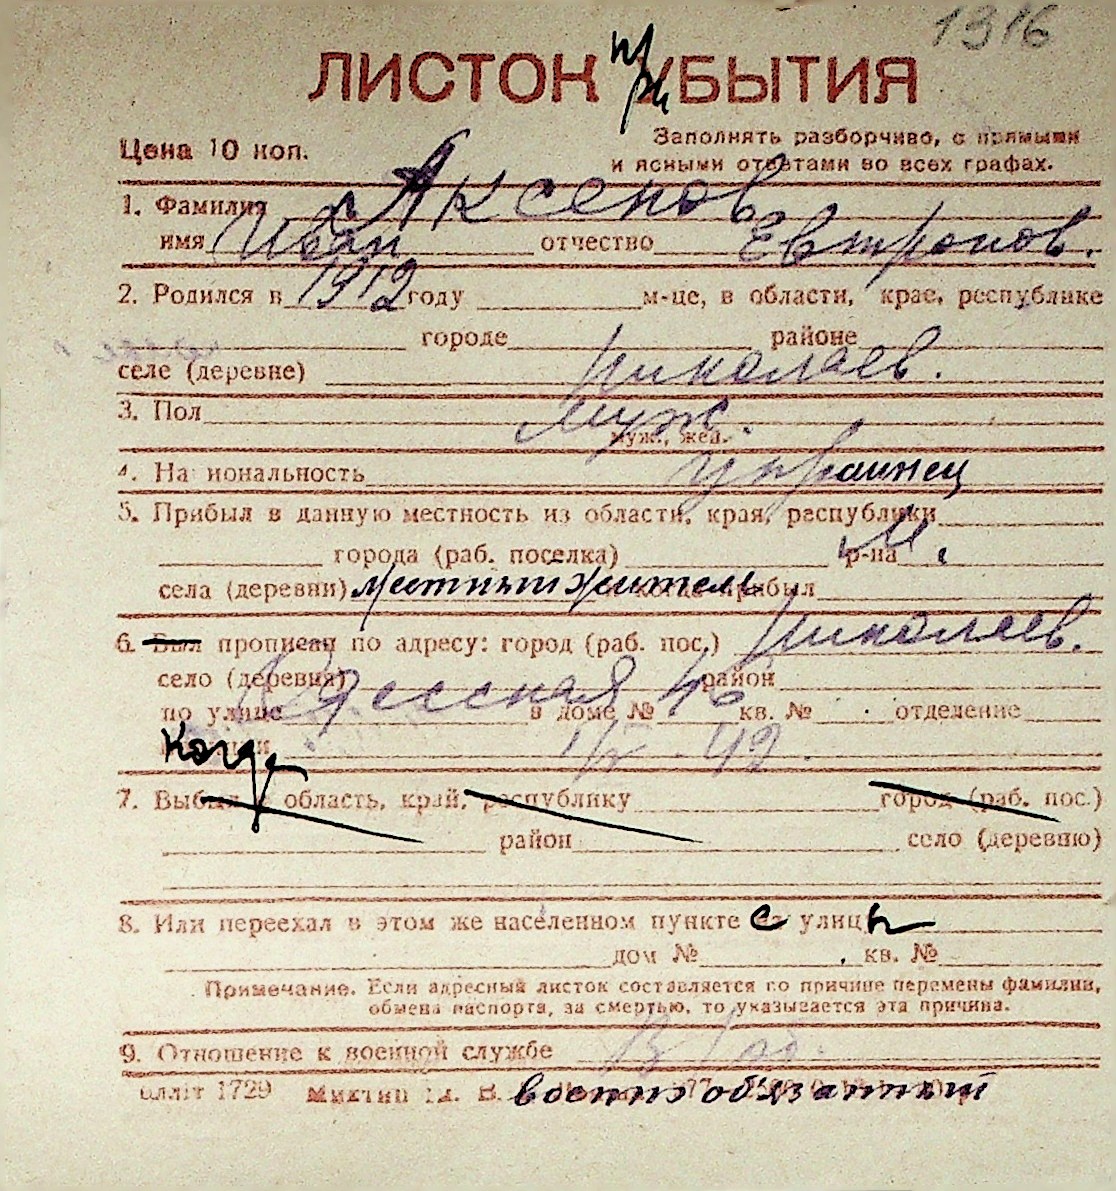 1316
ЛИСТОК прибытия
Цена 10 коп.
Заполнять разборчиво, с прямыми
и ясными ответами во всех графах.
1. Фамилия Аксенов
имя Иван отчество Евтропов.
2. Родился в 1912 году м-це, в области, крае, республике
городе районе
селе (деревне) Николаев.
3. Пол муж.
муж., жен.
4. Национальность украинец
5. Прибыл в данную местность из области, края, республики
города (раб. поселка) р-на М.
села (деревни) местный житель прибыл
6. Был прописан по адресу: город (раб. пос.) Николаев.
село (деревня) район
по улице Одесская в доме № 46 кв. № отделение
Когда 42
7. Выбыл в область, край, республику город (раб. пос.)
район село (деревню)
8. Или переехал в этом же населенном пункте с улицы
дом № кв. №
Примечание. Если адресный листок составляется по причине перемены фамилии,
обмена паспорта, за смертью, то указывается эта причина.
9. Отношение к военной службе В/об.
1729 военнообязанный